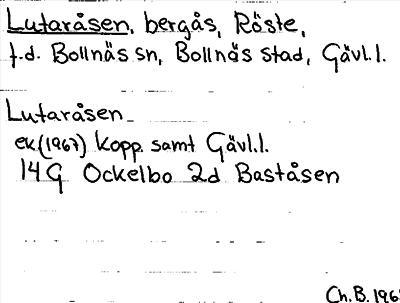 Lutaråsen, bergås, Röste,
f.d. Bollnäs sn, Bollnäs stad, Gävl.l.
Lutaråsen
ek (1967) Kopp. samt Gävl.l.
14G Ockelbo 2d Baståsen
Ch.B.